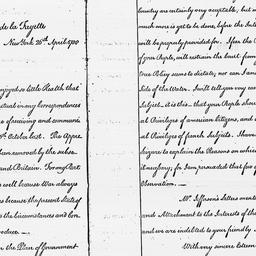 de la Fayette
New York 26th April 1790
enjoyed so little Health that
actual in my correspondences
of receiving and communi
October last. The Appre
been removed by the subse
and Britain. For my Part
well because War always
es because the present State of
the circumstances and
produce
the Plan of Government
country are certainly very acceptable, but
much more is yet to be done, before the Inte
will be properly provided for. After the
of your People, will restrain the Court from
true Policy seems to dictate; nor can I
Side of the Water. I will tell you very
Subject. it is: that your People should
al Privileges of american Citizens, and
al Privileges of french Subjects. I have
diegure to explain the Reasons on which
necessary; for I am persuaded that
Observation.
Mr. Jefferson's Letters
and Attachment to the Interests of the
and we are indebted to your friendly
With very sincere Esteem